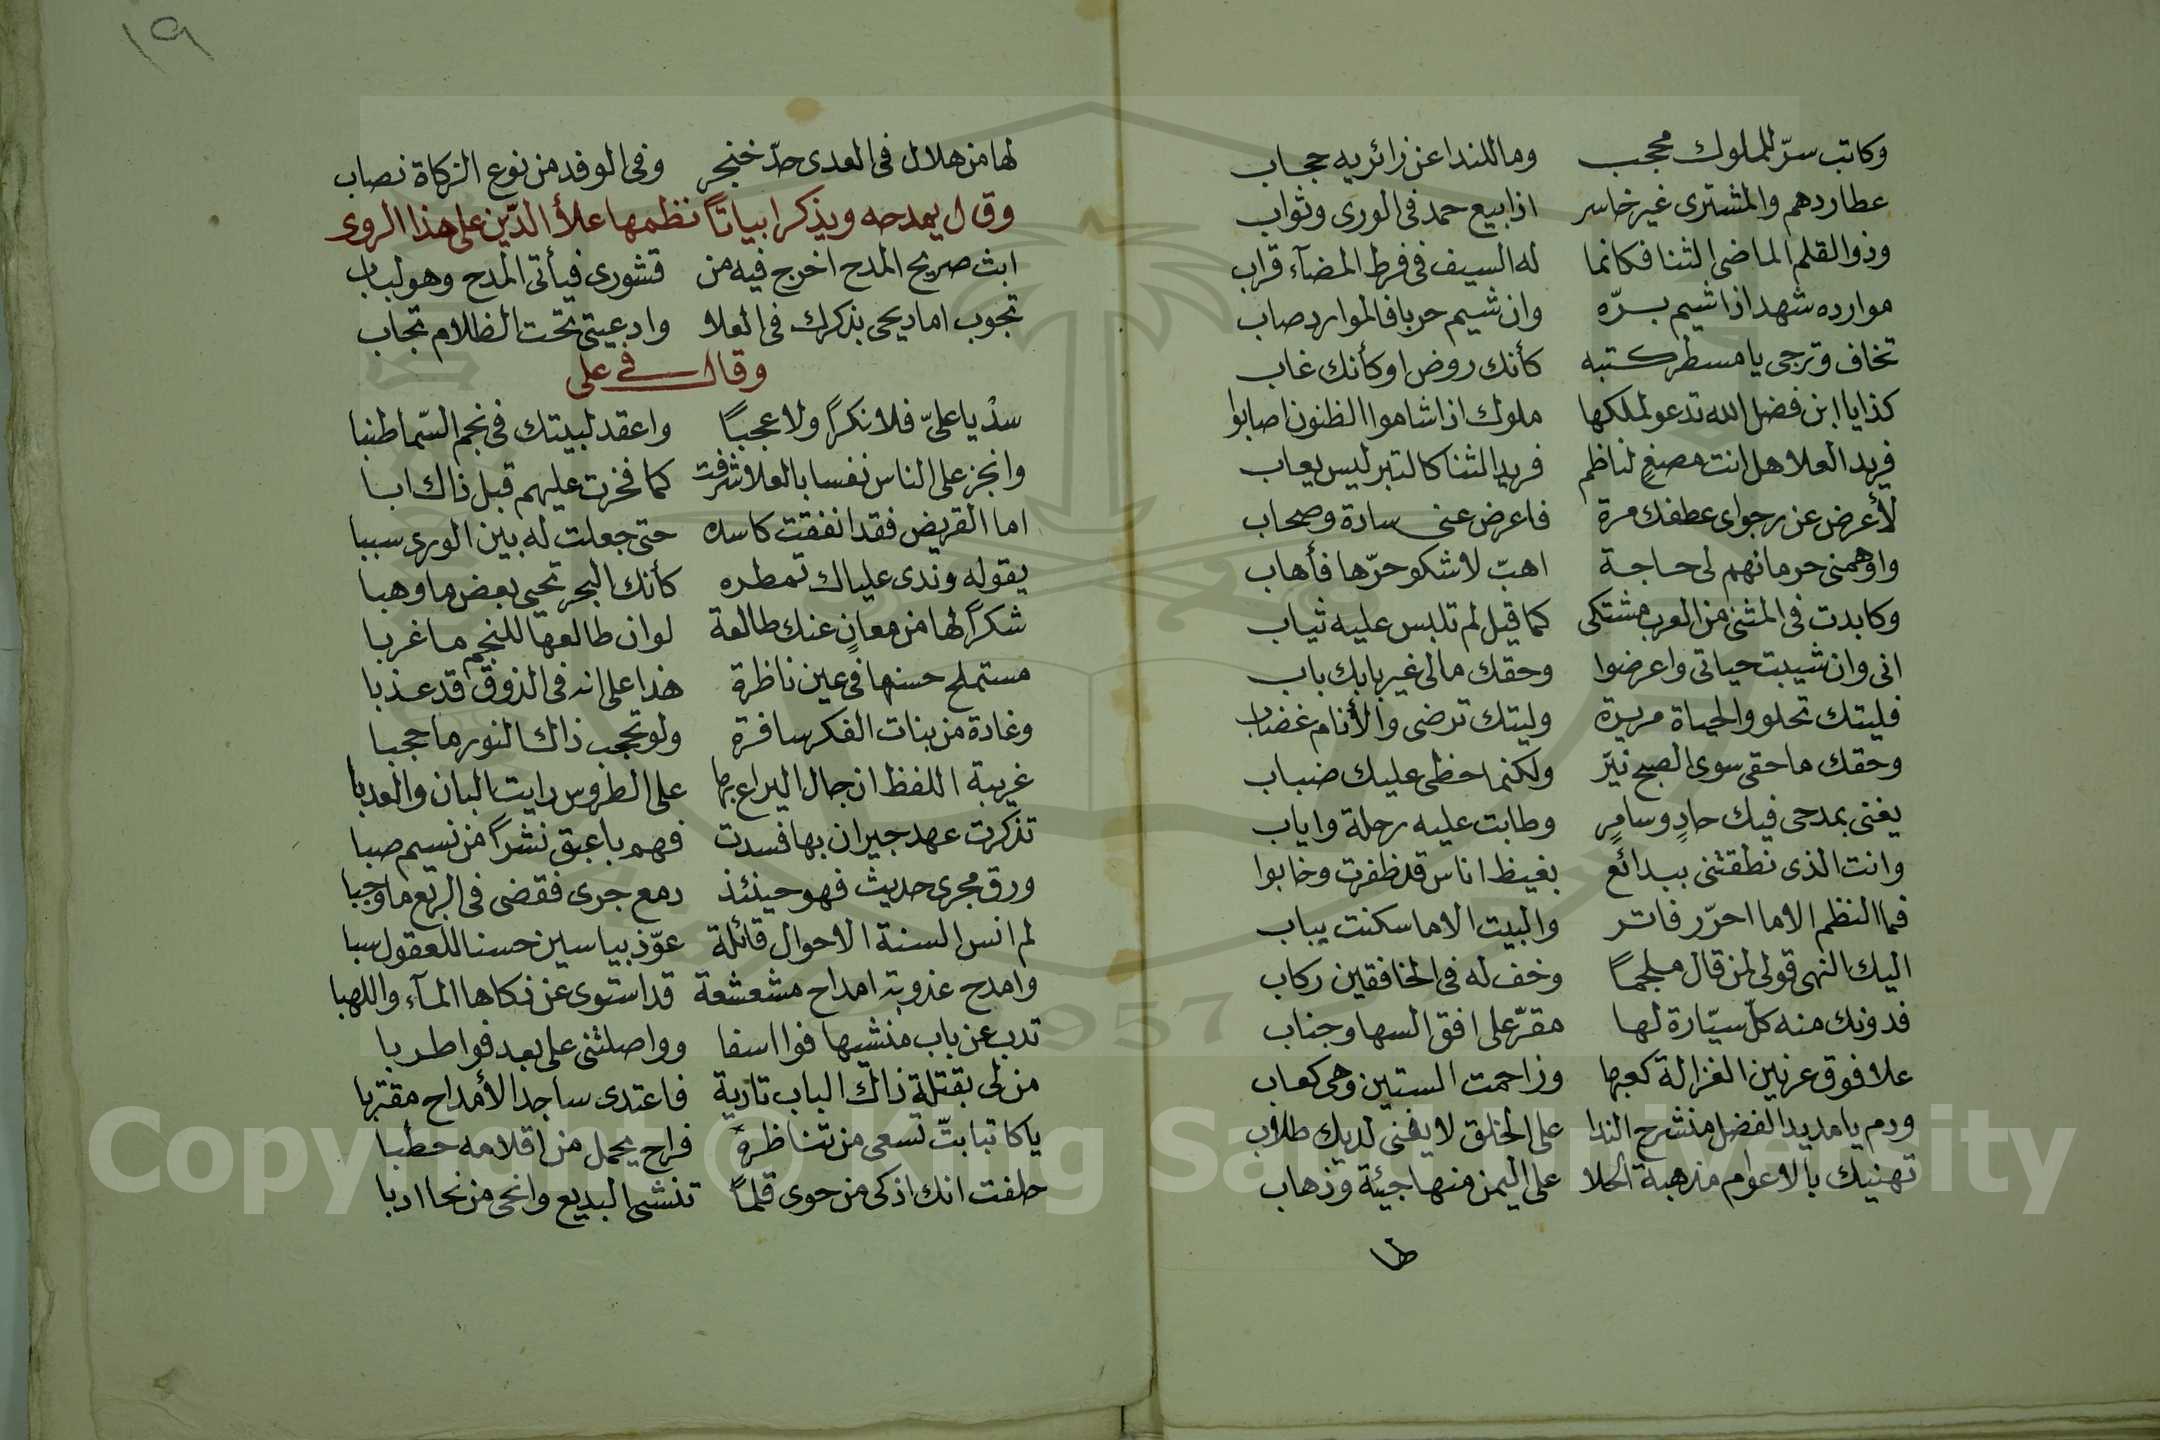 وكاتب سرّ للملوك محجب وما للندا عن زائريه حجاب
عطاردهم والمشترى غير خاسر اذا بيع حمد فى الورى وثواب
وذو القلم الماضى الثنا فكانما له السيف فى فرط المضآء قراب
موارده شهد اذا شيم بسرّه وان شيم حربا فالموارد صاب
تخاف وترجى يا مسطر كتبه كأنك روض او كأنك غاب
كذا يا ابن فضل الله تدعو لملكها ملوك اذا شاموا الظنون اصابوا
فريد العلا هل انت مصغٍ لناظم فريد الثنا كالتبر ليس يعاب
لأعرض عن رجواى عطفك مرة فاعرض عنى سادة وصحاب
واوهمنى حرمانهم لى حاجة اهبّ لاشكو حرّها فأهاب
وكابدت فى المشتى من العرب مشتكى كما قيل لم تلبس عليه ثياب
انى وان شيبت حياتى واعرضوا وحقك مالى غير بابك باب
فليتك تحلو والحياة مريرة وليتك ترضى والأنام غضاب
وحقك ما حقى سوى الصبح نيّر ولكنما حظى عليك ضباب
يغنى بمدحى فيك حادٍ وسامرٍ وطابت عليه رحلة واياب
وانت الذى نطقتنى ببدائع بغيظ اناس قد ظفرت وخابوا
فما النظم الا ما احرّر فاتر والبيت الا ما سكنت يباب
اليك النهى قولى لمن قال ملجمًا وخف له فى الخافقين ركاب
فدونك منه كلّ سيّارة لها مقرّ على افق السها وجناب
علا فوق عرنين الغزالة كعبها وزاحمت الستين وهى كعاب
ودم يا مديد الفضل منشرح الندا على الخلق لا يفنى لديك طلاب
تهنيك بالاعوام مذهبة الحلا على اليمن منها جيئة وذهاب
١٩
لها من هلال فى العدى حدّ خنجر وفى الوفد من نوع الزكاة نصاب
وقال يمدحه ويذكر ابياتًا نظمها علأ الدّين على هذا الروى
ابث صريح المدح اخرج فيه من قشورى فيأتى المدح وهو لباب
تجوب اماديحى بذكرك فى العلا وادعيتى تحت الظلام تجاب
وقال فى على
سدْ يا علىّ فلا نكرًا ولا عجبًا واعقد لبيتك فى نجم السّما طنبا
على الناس نفسا بالعلا شرفت كما فخرت عليهم قبل ذاك ابا
اما القريض فقد انفقت كاسده حتى جعلت له بين الورى سببا
يقوله وندى علياك تمطره كأنك البحر تحيى بعض ما وهبا
شكرًا لها من معانٍ عنك طالعة لو ان طالعها للنجم ما غربا
مستملح حسنها فى عين ناظرة هذا على انه فى الذوق قد عذبا
وغادة من بنات الفكر سافرة ولو تحجب ذاك النور ما حجبا
غريبة اللفظ ان جال اليراع بها على الطروس رايت البان والعدبا
تذكرت عهد جيران بها فسدت فهم باعبق نشرًا من نسيم صبا
ورق مجرى حديث فهو حينئذ دمع جرى فقضى فى الربع ما وجبا
لم انس السنة الاحوال قائلة عوّذ بياسين حسنا للعقول سبا
وامدح عذوبة امداح مشعشعة قد استوى عن ذكاها المآء واللهبا
تدب عن باب منشيها فوا اسفا وواصلتنى على بعد فوا طربا
من لى بقتلة ذاك الباب تأدية فاعتدى ساجد الأمداح مقتربا
يا كاتبا بتّ تسعى من تناظرة فراح يحمل من اقلامه حطبا
حلفت انك اذكى من حوى قلمًا تنشى البديع وانحى من نحا ادبا